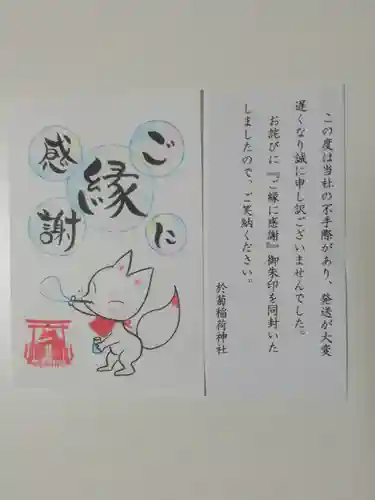 この度は当社の不手際があり、発送が大変
遅くなり誠に申し訳ございませんでした。
お詫びに『ご縁に感謝』御朱印を同封いた
しましたので、ご笑納ください。
於菊稲荷神社
ご
縁
に
感
謝